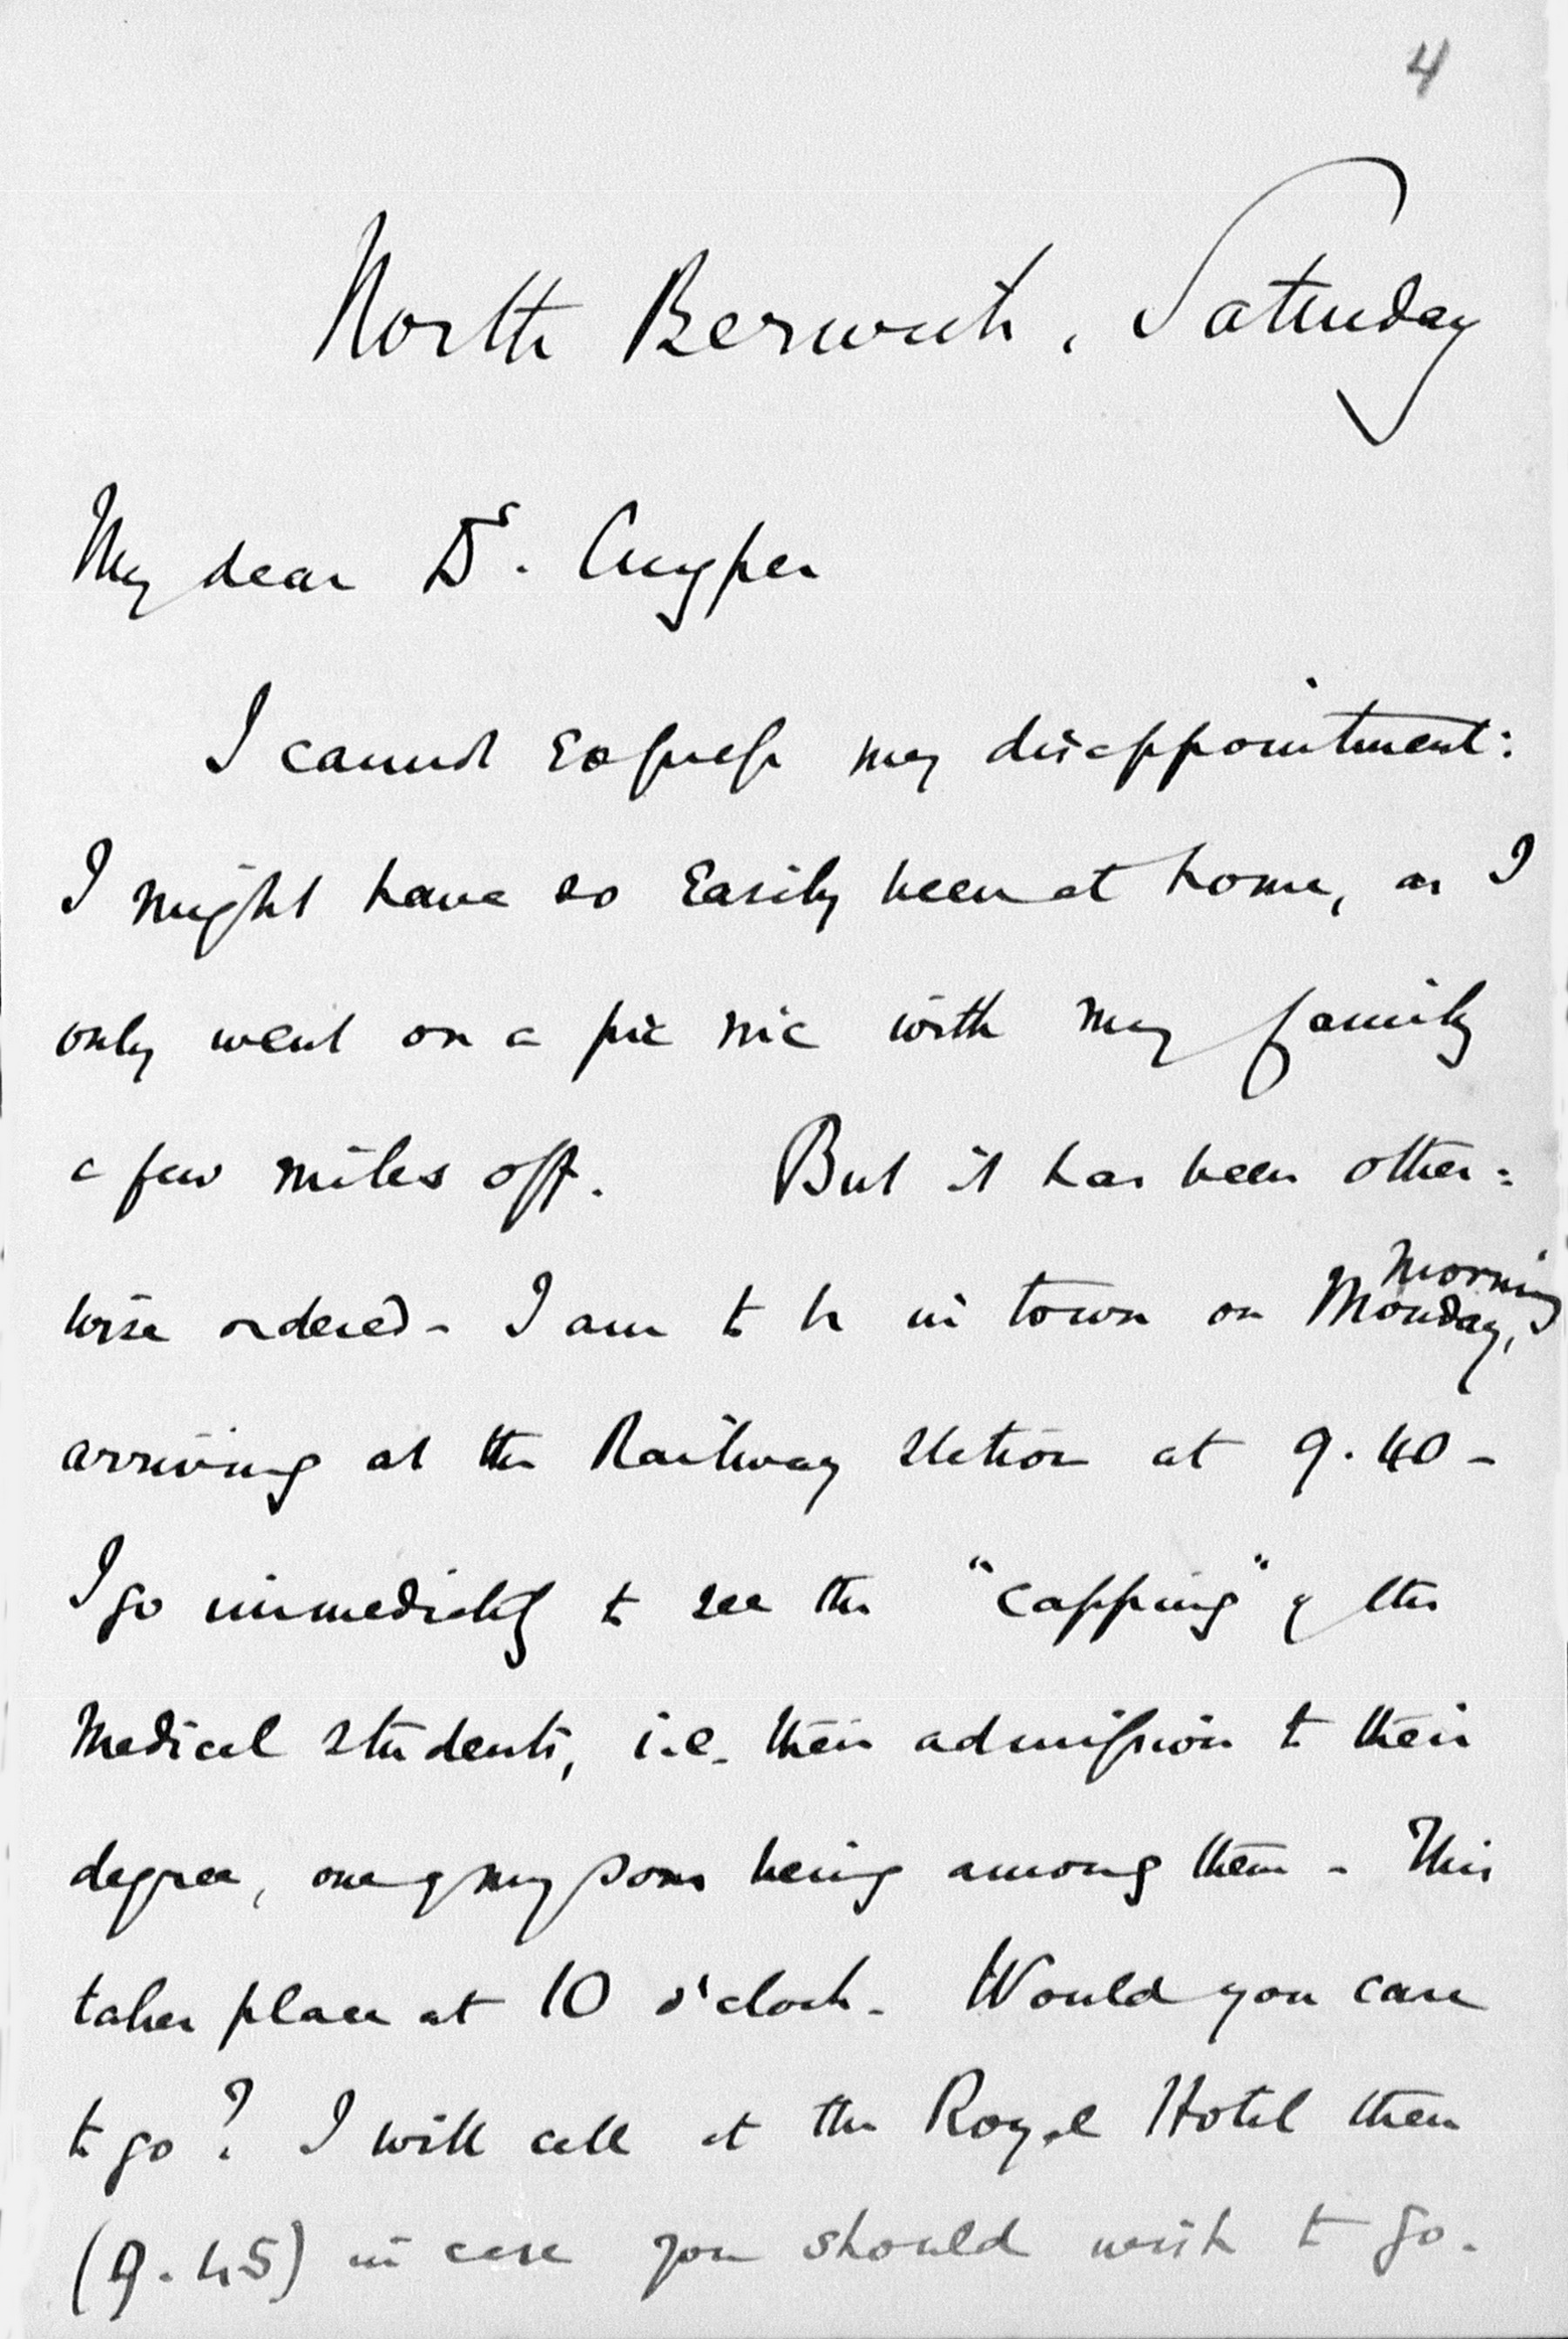 4
North Berwick, Saturday
My dear Dr. Cuyper
I cannot express my disappointment:
I might have so easily been at home, as I
only went on a pic nic with my family
a few miles off. But it has been other=
wise ordered - I am to be in town on Monday, morning
arriving at the Railway Station at 9.40 -
I go immediately to see the "capping" of the
Medical students, i.e. their admission to their
degree, one of my sons being among them - This
takes place at 10 o'clock - Would you care
to go? I will call at the Royal Hotel then
(9.45) in case you should wish to go.